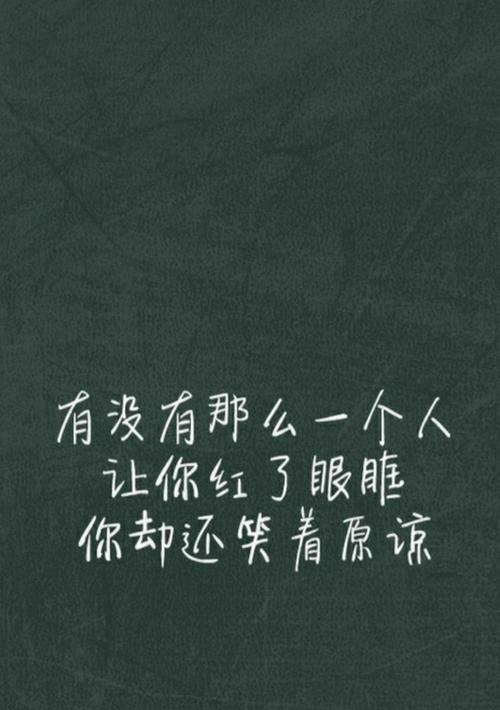 有没有那么一个人
让你红了眼眶
你却还笑着原谅